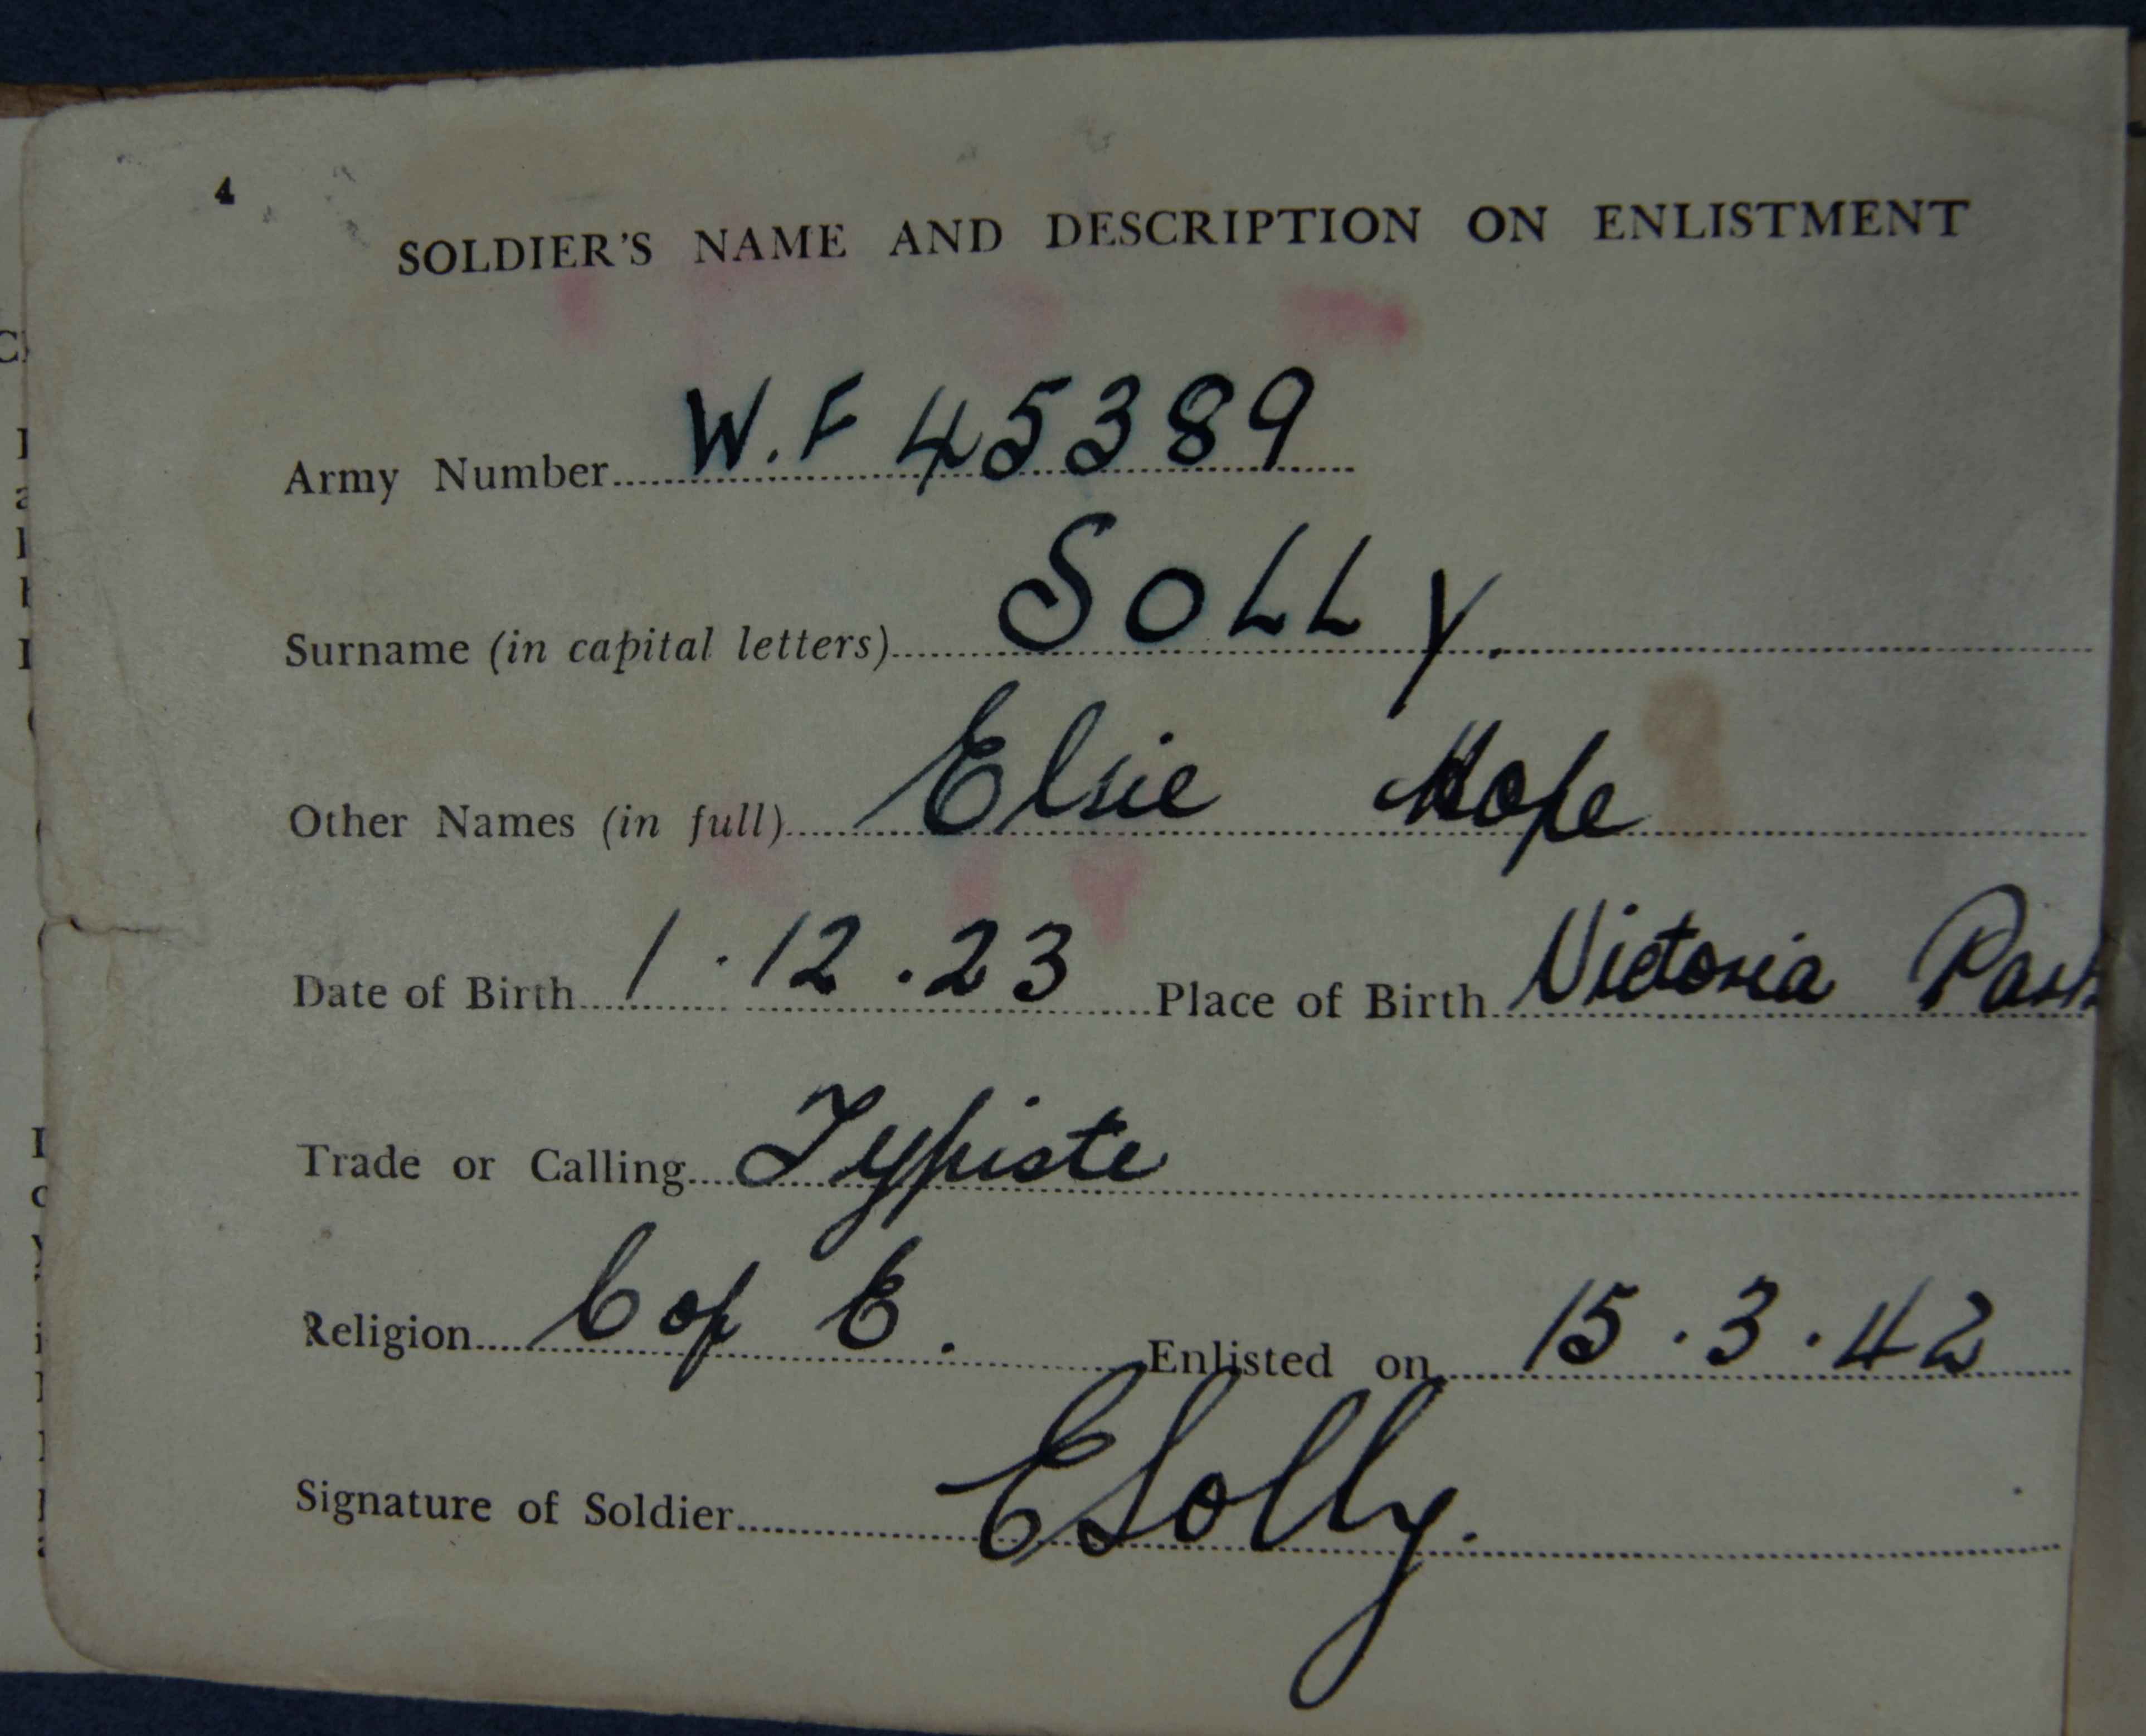 4
SOLDIER'S NAME AND DESCRIPTION ON ENLISTMENT
Army Number W.F 45389
Surname (in capital letters) SOLLY.
Other Names (in full) Elsie Hope
Date of Birth 1.12.23 Place of Birth Victoria Park
Trade or Calling Typiste
Religion C of E. Enlisted on 15.3.42
Signature of Soldier ESolly.